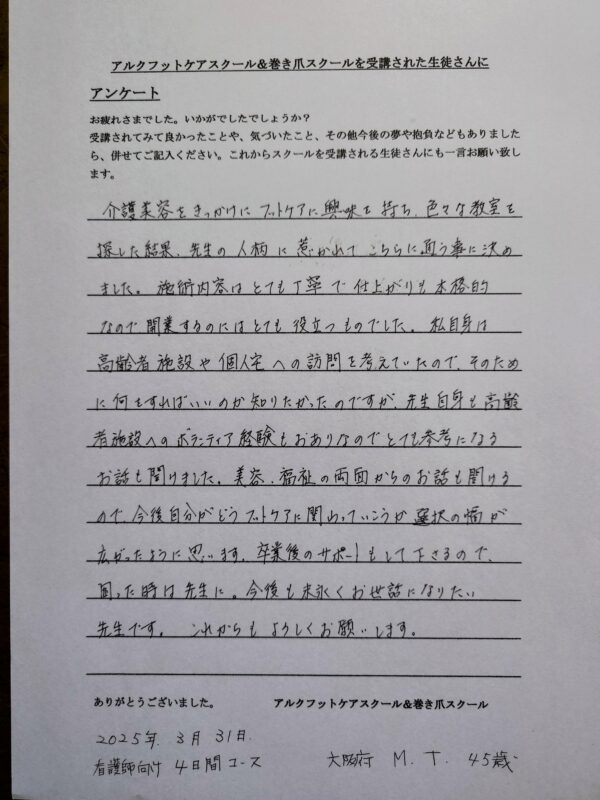 アルクフットケアスクール＆巻き爪スクールを受講された生徒さんに
アンケート
お疲れさまでした。いかがでしたでしょうか？
受講されてみて良かったことや、気づいたこと、その他今後の夢や抱負などもありました
ら、併せてご記入ください。これからスクールを受講される生徒さんにも一言お願い致し
ます。
介護美容をきっかけにフットケアに興味を持ち、色々な教室を
探した結果、先生の人柄に惹かれてこちらに通う事に決め
ました。施術内容はとても丁寧で仕上がりも本格的
なので開業するのにはとても役立つものでした。私自身は
高齢者施設や個人宅への訪問を考えていたので、そのため
に何をすればいいのか知りたかったのですが、先生自身も高齢
者施設へのボランティア経験もおありなのでとても参考になる
お話も聞けました。美容、福祉の両面からのお話も聞ける
ので、今後自分がどうフットケアに関わっていこうか選択の幅が
広がったように思います。卒業後のサポートもして下さるので、
困った時は先生に。今後も末永くお世話になりたい
先生です。これからもよろしくお願いします。
ありがとうございました。 アルクフットケアスクール＆巻き爪スクール
2025年 3月 31日
看護師向け 4日間コース 大阪府 M.T. 45歳